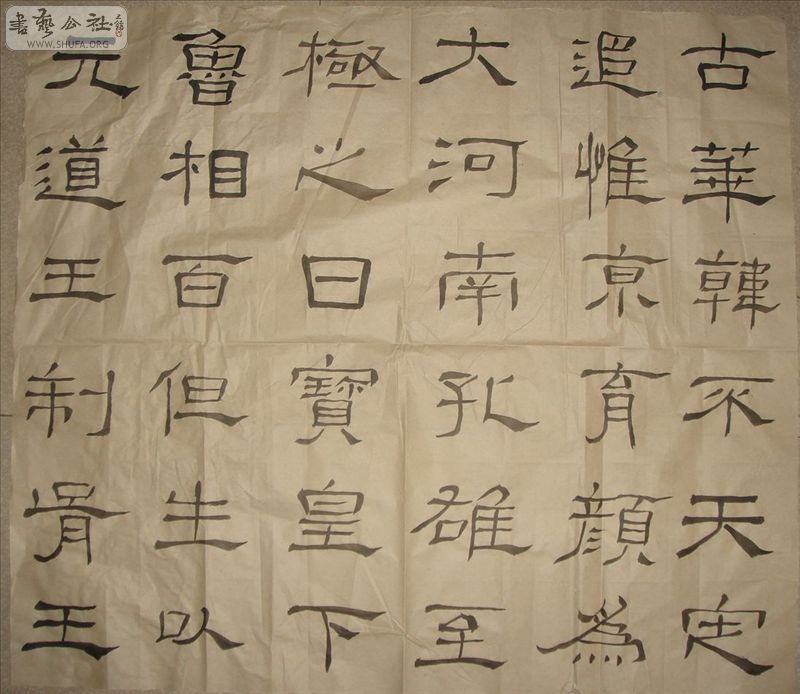 古華韓不天定
追惟京育顏為
大河南孔雄至
極之日寶皇下
魯相百但生以
元道王制胥王
書藝公社
WWW.SHUFA.ORG